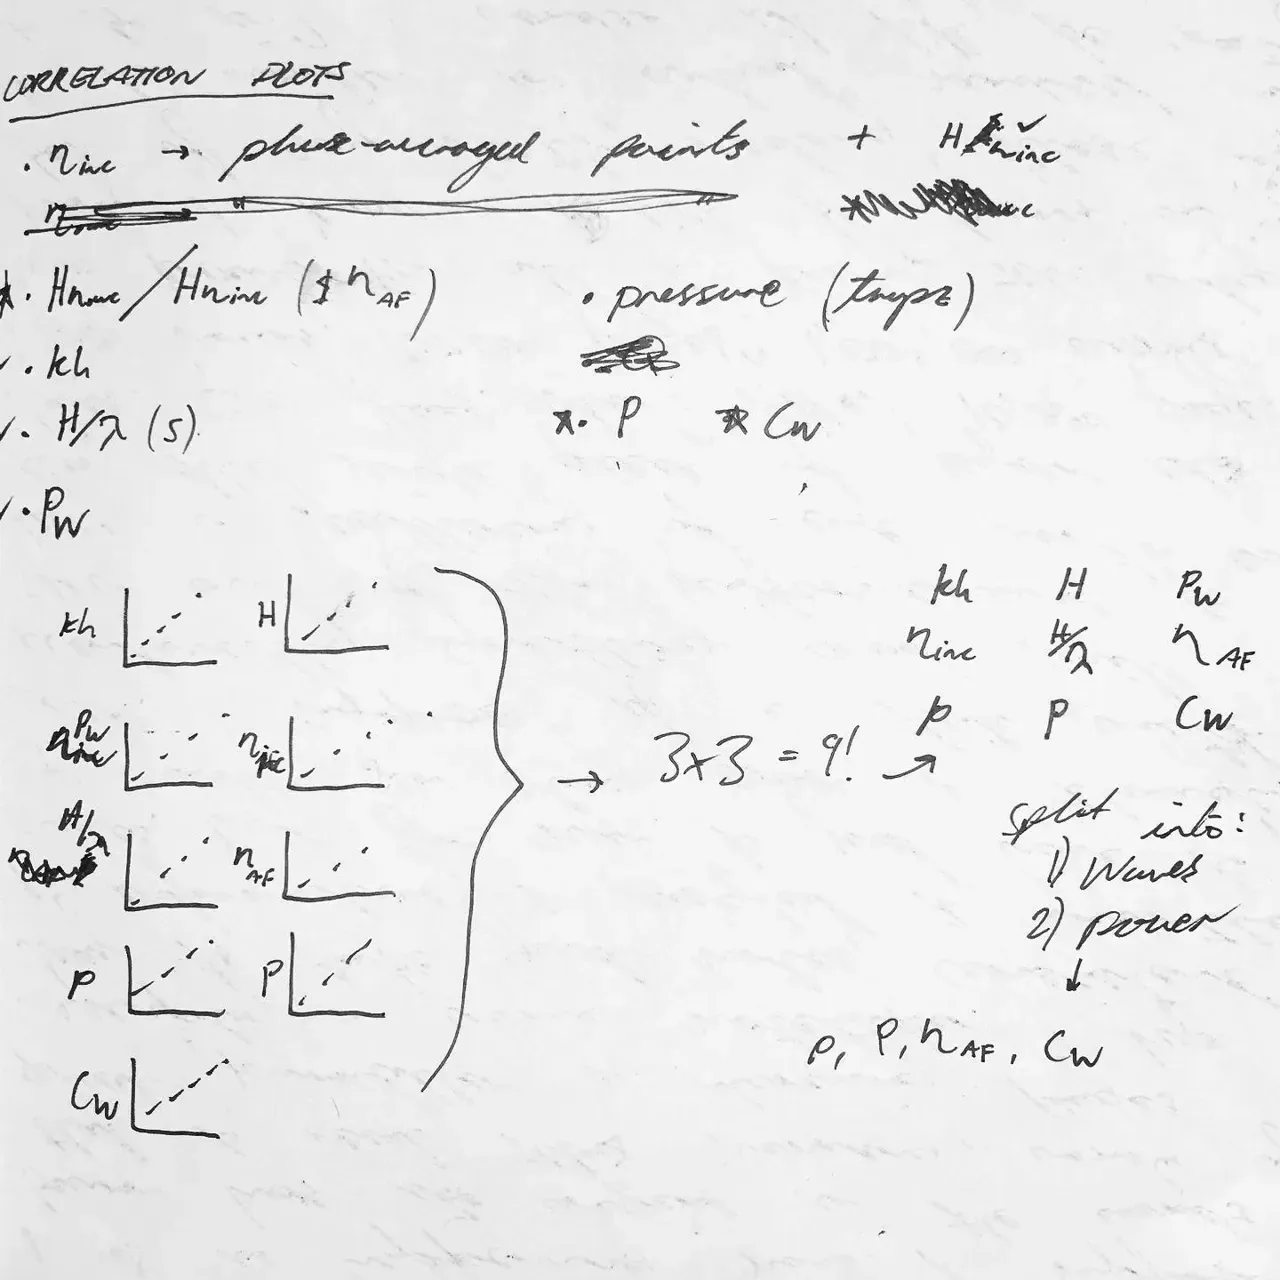 CORRELATION PLOTS
. ηinc → phase-averaged points + H ηinc ✓
* . Hηowc / Hηinc ( ηAF) . pressure
✓ . kh
✓ . H/λ (s) *. P * Cw
✓ . Pw
kh H
Pw ηinc
H/λ ηAF
p P
Cw
→ 3x3 = 9!
kh H Pw
ηinc H/λ ηAF
p P Cw
split into:
1) Waves
2) power
↓
p, P, ηAF, Cw